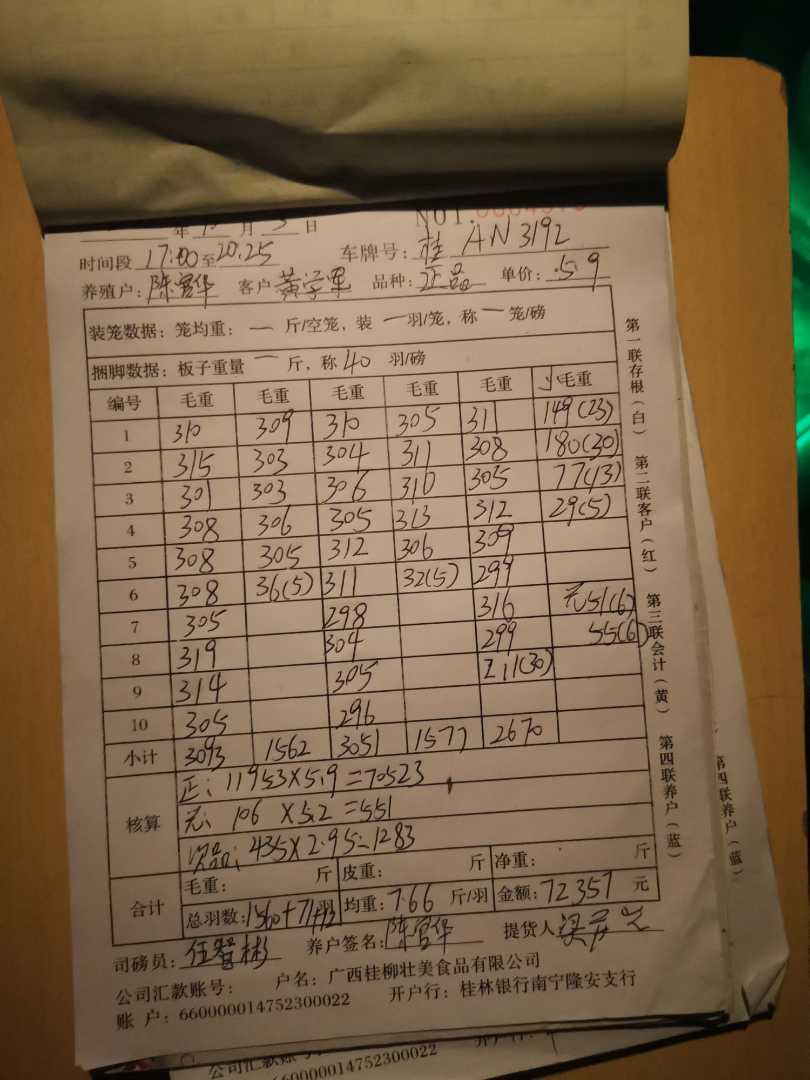 年 月 3 日 NO1.
时间段 17:00至20:25 车牌号: 桂 AN3192
养殖户: 陈官华 客户 黄学军 品种: 正品 单价: 5.9
装笼数据: 笼均重: 一 斤/空笼, 装 一 羽/笼, 称 一 笼/磅
捆脚数据: 板子重量 一 斤, 称 40 羽/磅
编号 毛重 毛重 毛重 毛重 毛重 毛重
1 310 309 310 305 311 149(23)
2 315 303 304 311 308 180(30)
3 301 303 306 310 305 77(13)
4 308 306 305 313 312 29(5)
5 308 305 312 306 309
6 308 36(5) 311 32(5) 299
7 305 298 316 51(6)
8 319 304 299 55(6)
9 314 305 211(30)
10 305 296
小计 3093 1562 3051 1577 2670
核算
正: 11953×5.9=70523
106 ×5.2=551
次品: 435×2.95=1283
合计
毛重: 斤 皮重: 斤 净重: 斤
总羽数: 1560+71+12 羽 均重: 7.66 斤/羽 金额: 72357 元
司磅员: 伍智彬 养户签名: 陈官华 提货人
公司汇款账号: 户名: 广西桂柳壮美食品有限公司
账 户: 660000014752300022 开户行: 桂林银行南宁隆安支行
第一联存根(白) 第二联客户(红) 第三联会计(黄) 第四联养户(蓝)
第四联养户(蓝)
公司汇款账
660000014752300022